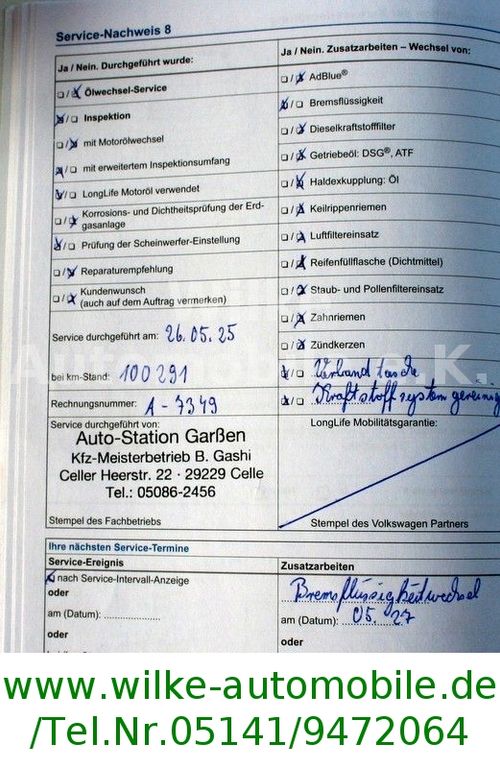 Service-Nachweis 8
Ja / Nein. Durchgeführt wurde:
Ja / Nein. Zusatzarbeiten – Wechsel von:
Ölwechsel-Service
AdBlue®
Inspektion
Bremsflüssigkeit
mit Motorölwechsel
Dieselkraftstofffilter
mit erweitertem Inspektionsumfang
Getriebeöl: DSG®, ATF
LongLife Motoröl verwendet
Haldexkupplung: Öl
Korrosions- und Dichtheitsprüfung der Erd-
gasanlage
Keilrippenriemen
Prüfung der Scheinwerfer-Einstellung
Luftfiltereinsatz
Reparaturempfehlung
Reifenfüllflasche (Dichtmittel)
Kundenwunsch
(auch auf dem Auftrag vermerken)
Staub- und Pollenfiltereinsatz
Zahnriemen
Service durchgeführt am: 26.05.25
Zündkerzen
bei km-Stand: 100291
Verbandtasche
Rechnungsnummer: A-7349
Kraftstoffsystem gereinig
Service durchgeführt von:
LongLife Mobilitätsgarantie:
Auto-Station Garßen
Kfz-Meisterbetrieb B. Gashi
Celler Heerstr. 22 · 29229 Celle
Tel.: 05086-2456
Stempel des Fachbetriebs
Stempel des Volkswagen Partners
Ihre nächsten Service-Termine
Service-Ereignis
Zusatzarbeiten
nach Service-Intervall-Anzeige
oder
Bremsflüssigkeitwechsel
am (Datum):
am (Datum): 05.27
oder
oder
www.wilke-automobile.de
/Tel.Nr.05141/9472064